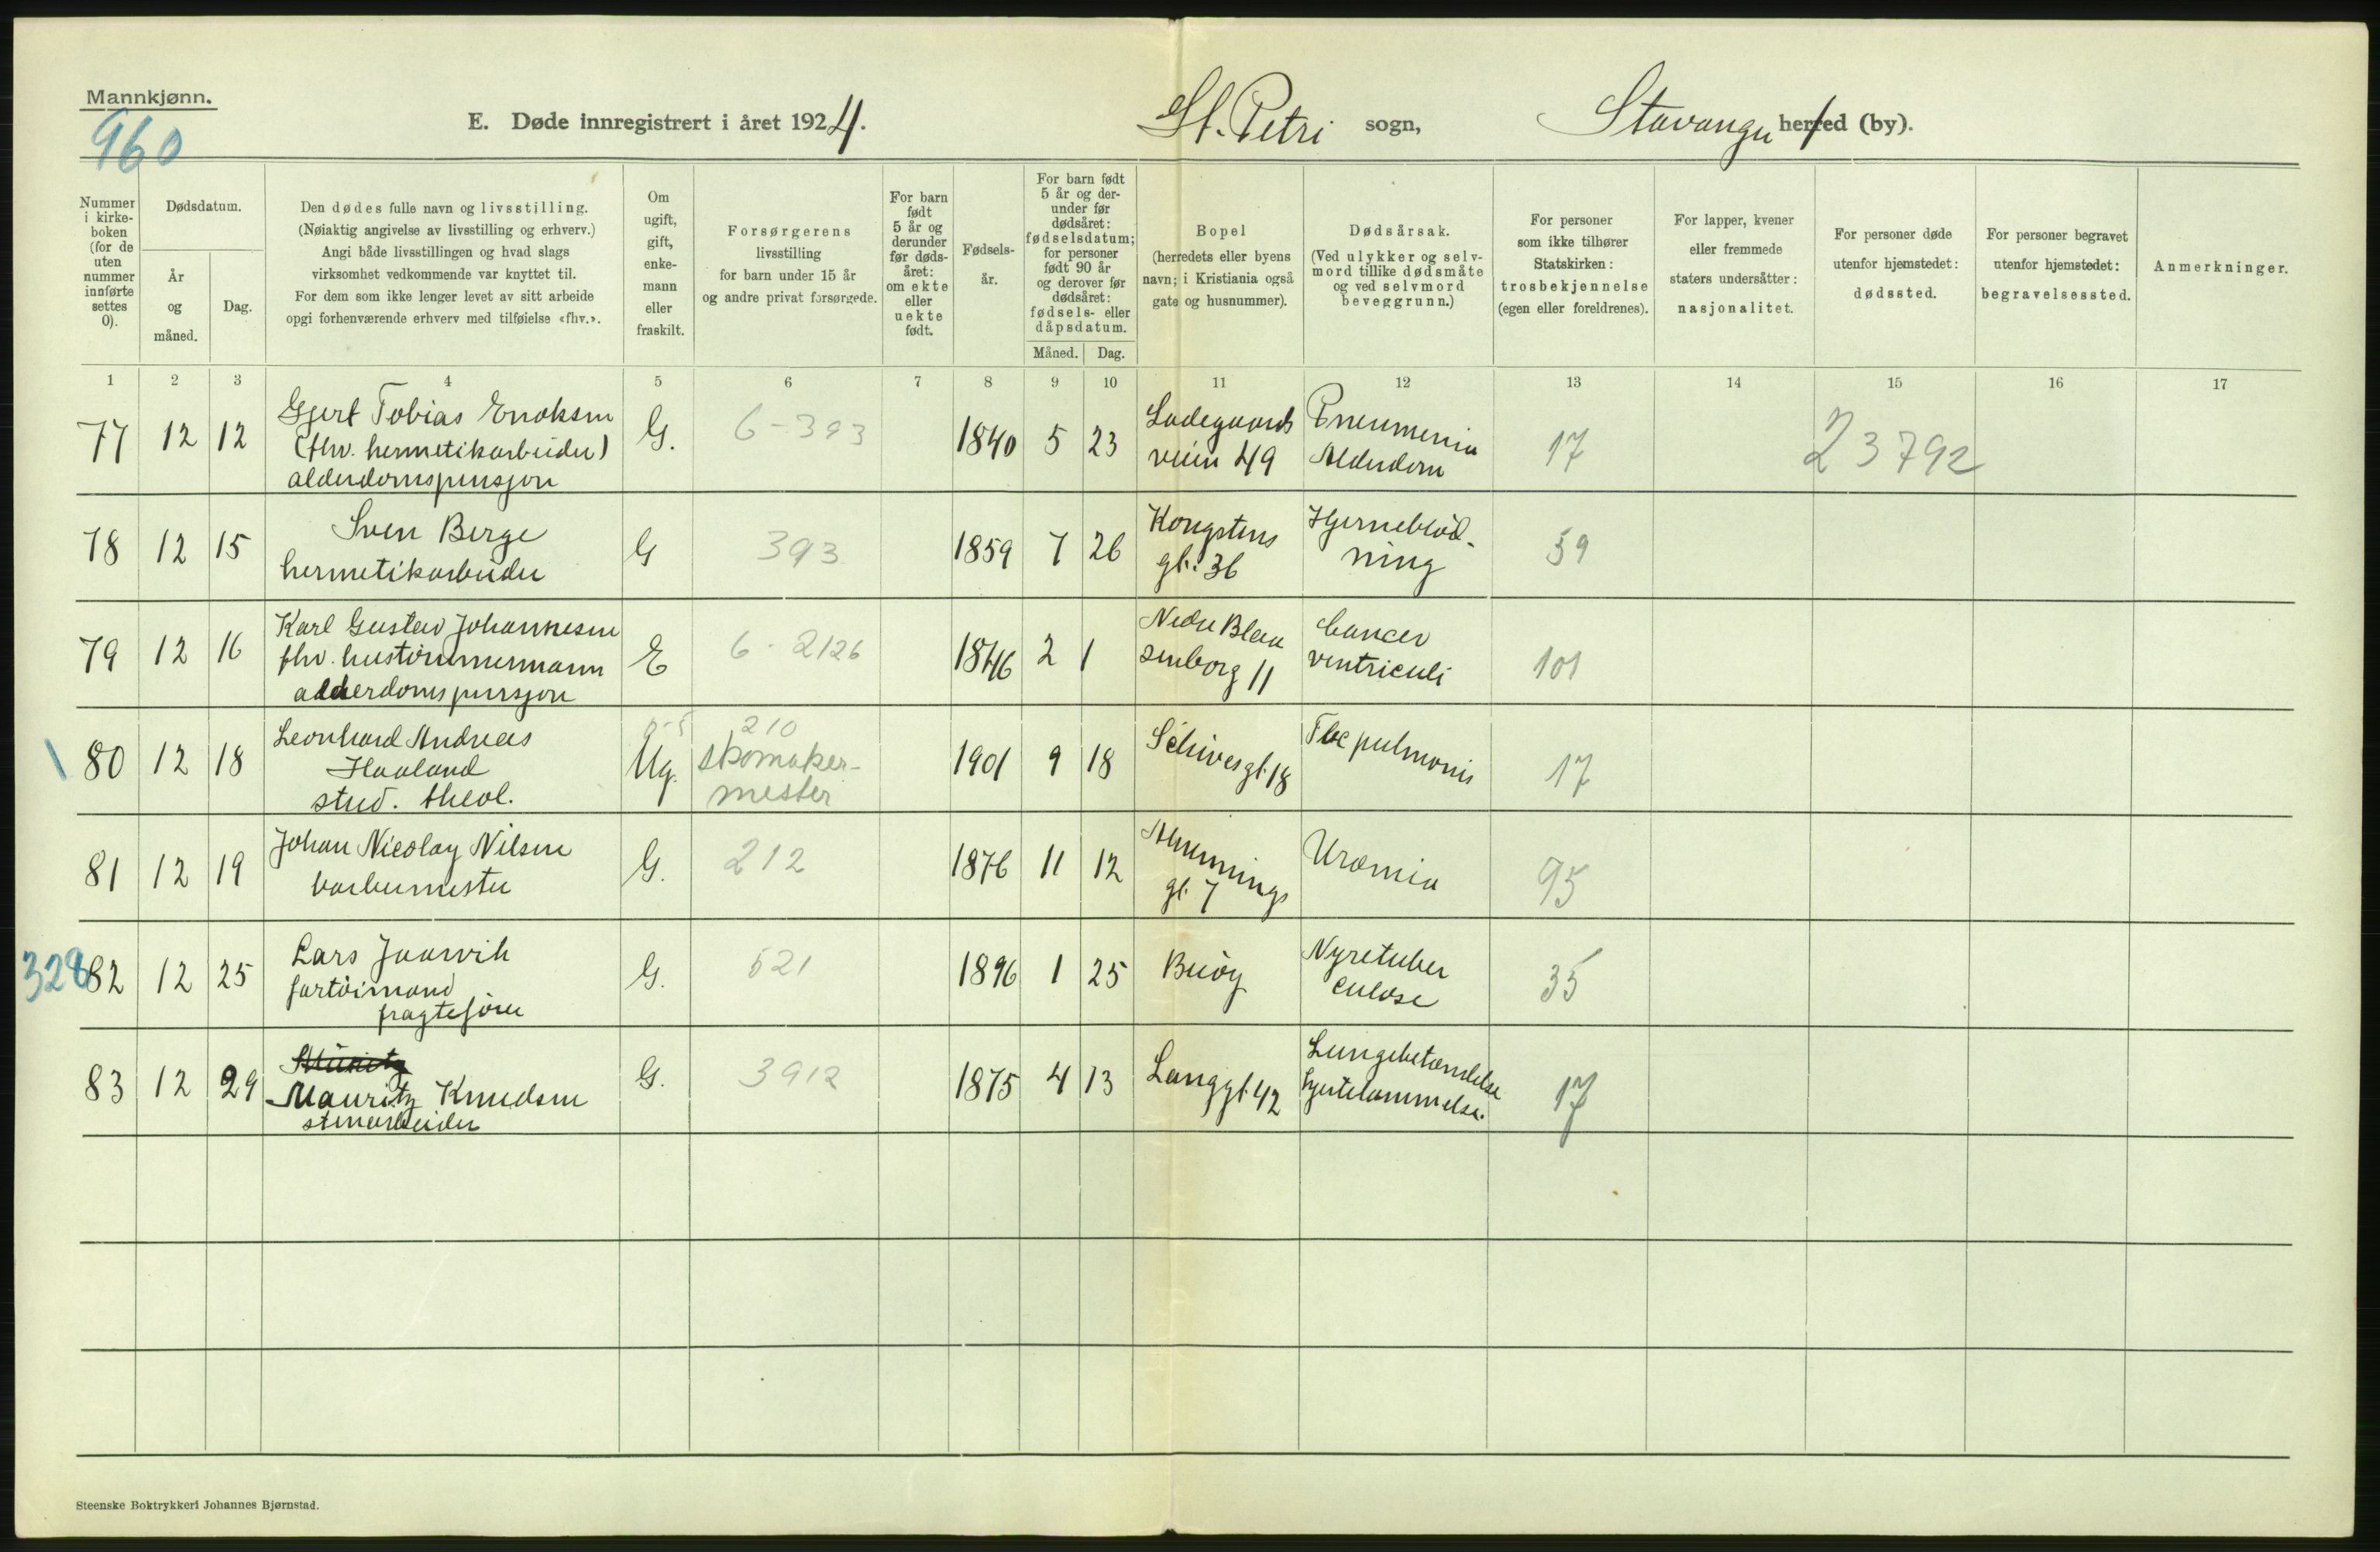 Mannkjønn.
960
E. Døde innregistrert i året 1924.
St. Petri sogn,
Stavanger herred (by).
Nummer i kirke-boken (for de uten nummer innførte settes 0).
Dødsdatum.
År og måned.
Dag.
Den dødes fulle navn og livsstilling.
(Nøiaktig angivelse av livsstilling og erhverv.)
Angi både livsstillingen og hvad slags
virksomhet vedkommende var knyttet til.
For dem som ikke lenger levet av sitt arbeide
opgi forhenværende erhverv med tilføielse «fhv.».
Om ugift, gift, enke-mann eller fraskilt.
Forsørgerens
livsstilling
for barn under 15 år
og andre privat forsørgede.
For barn født 5 år og derunder før døds-året: om ekte eller uekte født.
Fødsels-år.
For barn født 5 år og der-under før dødsåret: fødselsdatum; for personer født 90 år og derover før dødsåret: fødsels- eller dåpsdatum.
Måned. Dag.
Bopel
(herredets eller byens
navn; i Kristiania også
gate og husnummer).
Dødsårsak.
(Ved ulykker og selv-
mord tillike dødsmåte
og ved selvmord
beveggrunn.)
For personer
som ikke tilhører
Statskirken:
trosbekjennelse
(egen eller foreldrenes).
For lapper, kvener
eller fremmede
staters undersåtter:
nasjonalitet.
For personer døde
utenfor hjemstedet:
dødssted.
For personer begravet
utenfor hjemstedet:
begravelsessted.
Anmerkninger.
1 2 3 4 5 6 7 8 9 10 11 12 13 14 15 16 17
77 12 12 Gjert Tobias Enoksen
(fhv. hermetikarbeider)
alderdomspensjon
G. 6-393 1840 5 23
Ladegaards
veien 49
Pneumenia
Alderdom
17 23792
78 12 15 Sven Berge
hermetikarbeider
G 393 1859 7 26
Kongstens
gt. 36
Hjerneblød-
ning
59
79 12 16 Karl Gustav Johannesen
fhv. hustømmermann
alderdomspensjon
E 6-2126 1846 2 1
Nedre Blaa
senborg 11
Cancer
ventriculi
101
80 12 18 Leonhard Andreas
Haaland
stud. theol.
Ug. 210
skomaker-
mester
1901 9 18
gt. 18
Tbc pulmonis
17
81 12 19 Johan Nicolay Nilsen
barbermester
G. 212 1876 11 12
gt. 7
Uræmia
95
328
82 12 25 Lars
fartøimand
fragtefører
G. 521 1896 1 25
Buøy
Nyretuber
culose
35
83 12 29
Mauritz Knudsen
stenarbeider
G. 3912 1875 4 13
Langgt. 42
Lungebetændelse
hjertelammelse.
17
Steenske Boktrykkeri Johannes Bjørnstad.